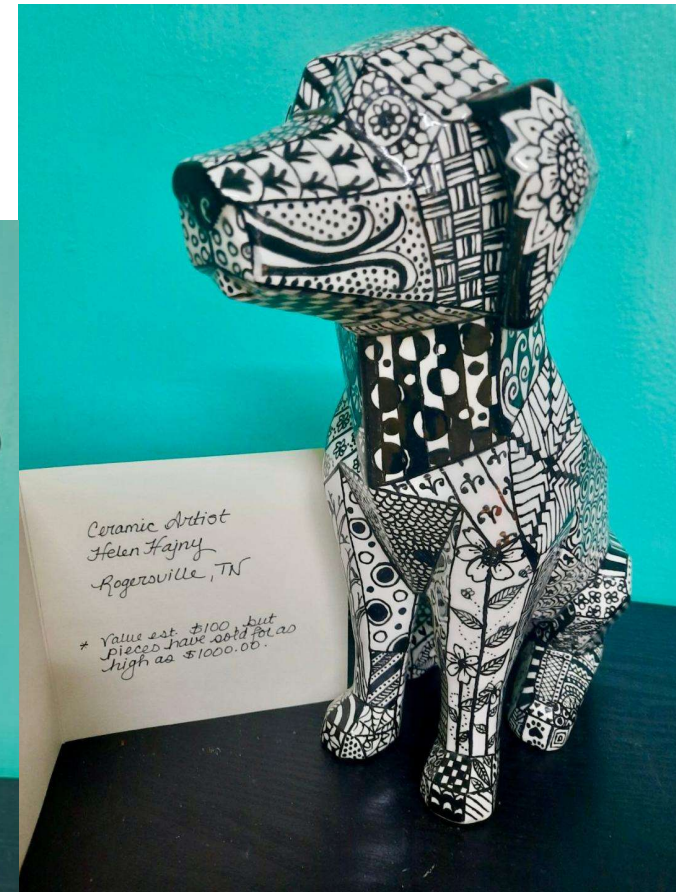 Ceramic Artist
Helen Hajny
Rogersville, TN
* Value est. $100, but
pieces have sold for as
high as $1000.00.